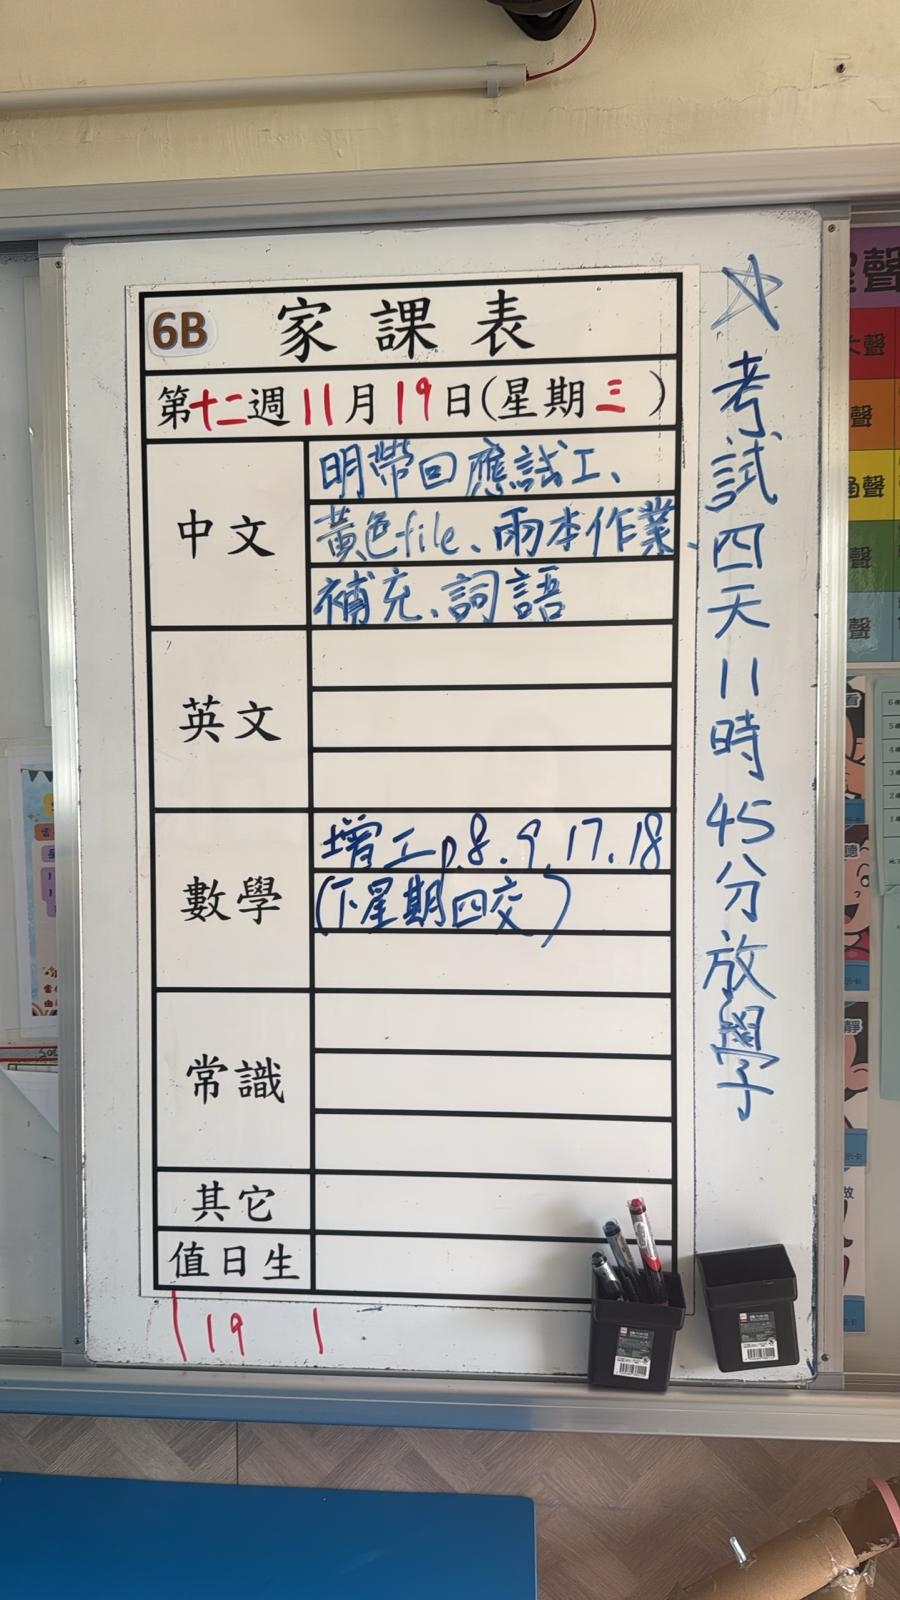 6B 家課表
第十二週 11月19日(星期三)
中文
明帶回應試工、
黃色file、兩本作業、
補充、詞語
英文
數學
增工p.8.9.17.18
(下星期四交)
常識
其它
值日生
1 19 1
☆考試四天11時45分放學
大聲
聲
聲
聲